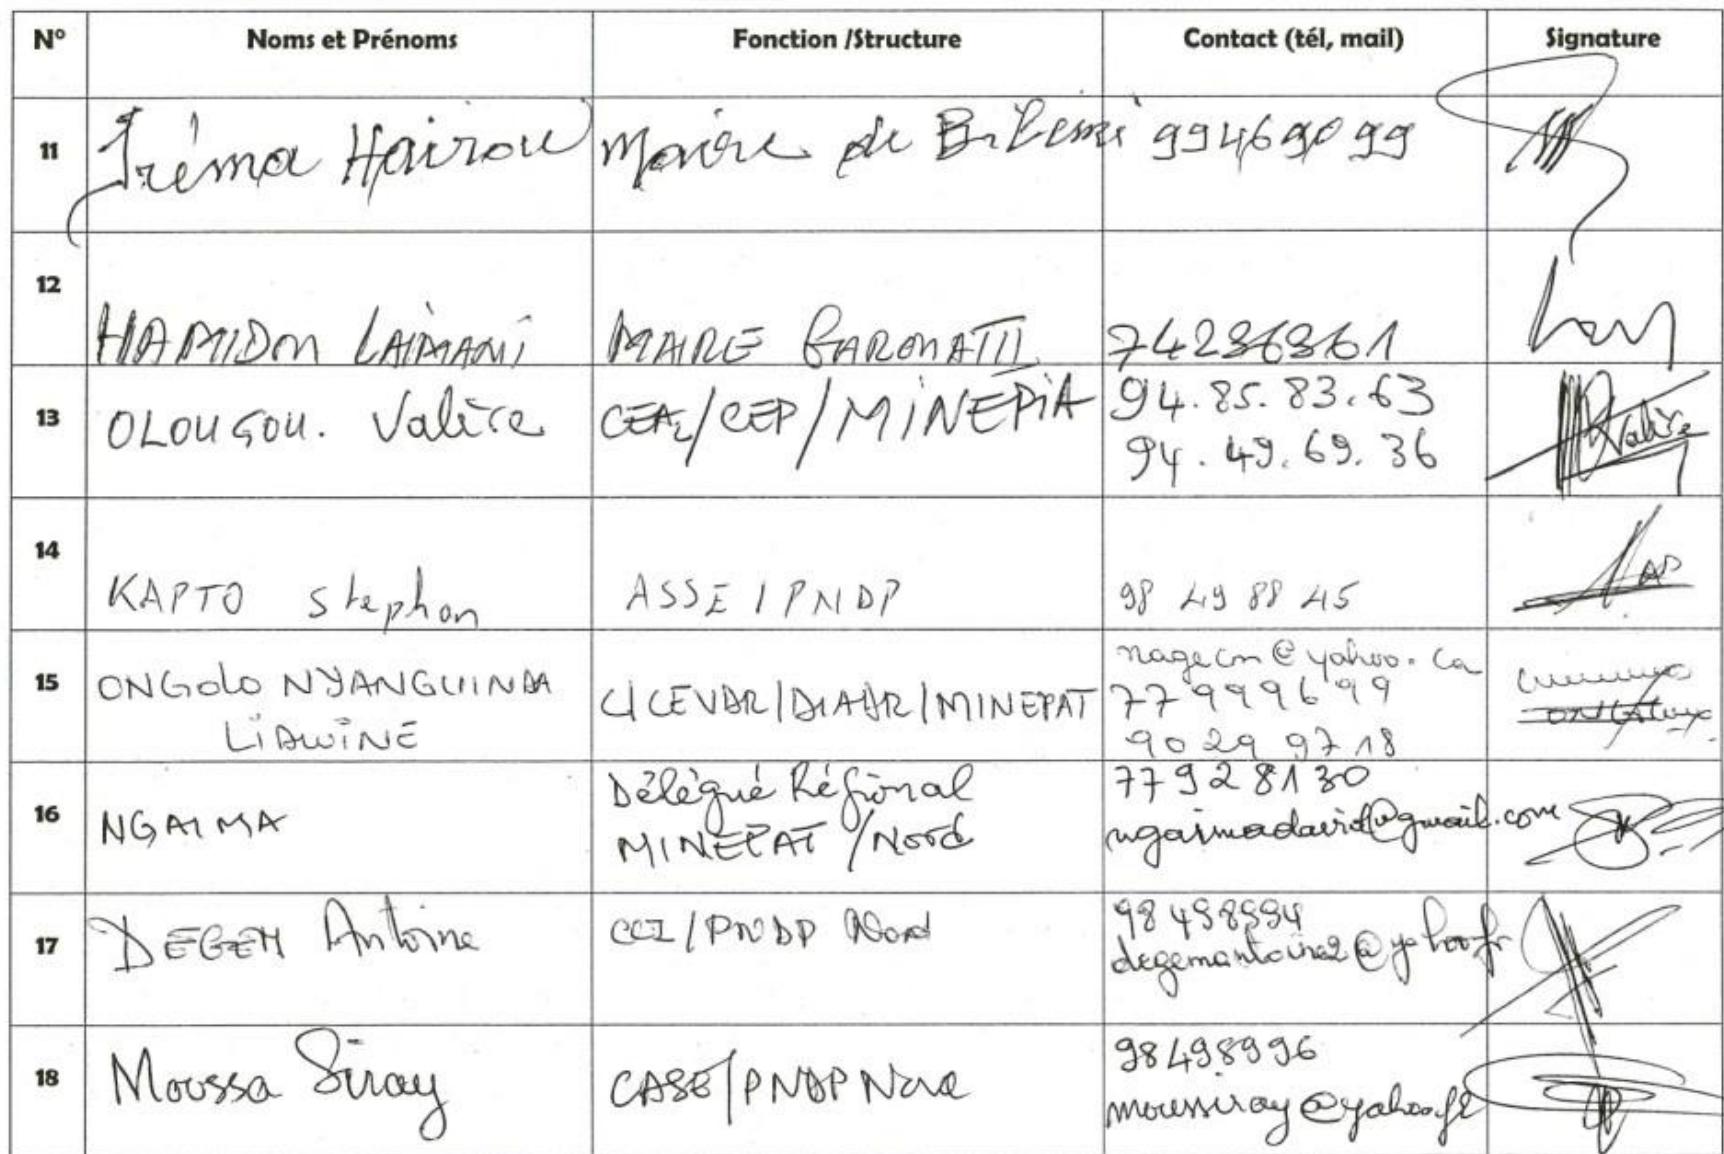 N° Noms et Prénoms Fonction /Structure Contact (tél, mail) Signature
11 Iréma Hairou Maire de Bibemi 99469099
12 HAMIDOU LAIMANI MAIRE GAROUA III 74236361
13 OLOUGOU. Valère CEA2/CEP/MINEPIA 94.85.83.63
94.49.69.36 Valère
14 KAPTO Stephan ASSE/PNDP 98 49 88 45
15 ONGOLO NYANGUINDA C/CEVDR/DIADR/MINEPAT nagecm@yahoo.ca
LIDWINE 77 99 96 99
90 29 97 18
16 NGAIMA Délégué Régional 77928130
MINEPAT/Nord ngaimadavid@gmail.com
17 DEGEM Antoine CCI/PNDP Nord 98498994
degemantoine2@yahoo.fr
18 Moussa Siray CASE/PNDP Nord 98498996
moussiray@yahoo.fr